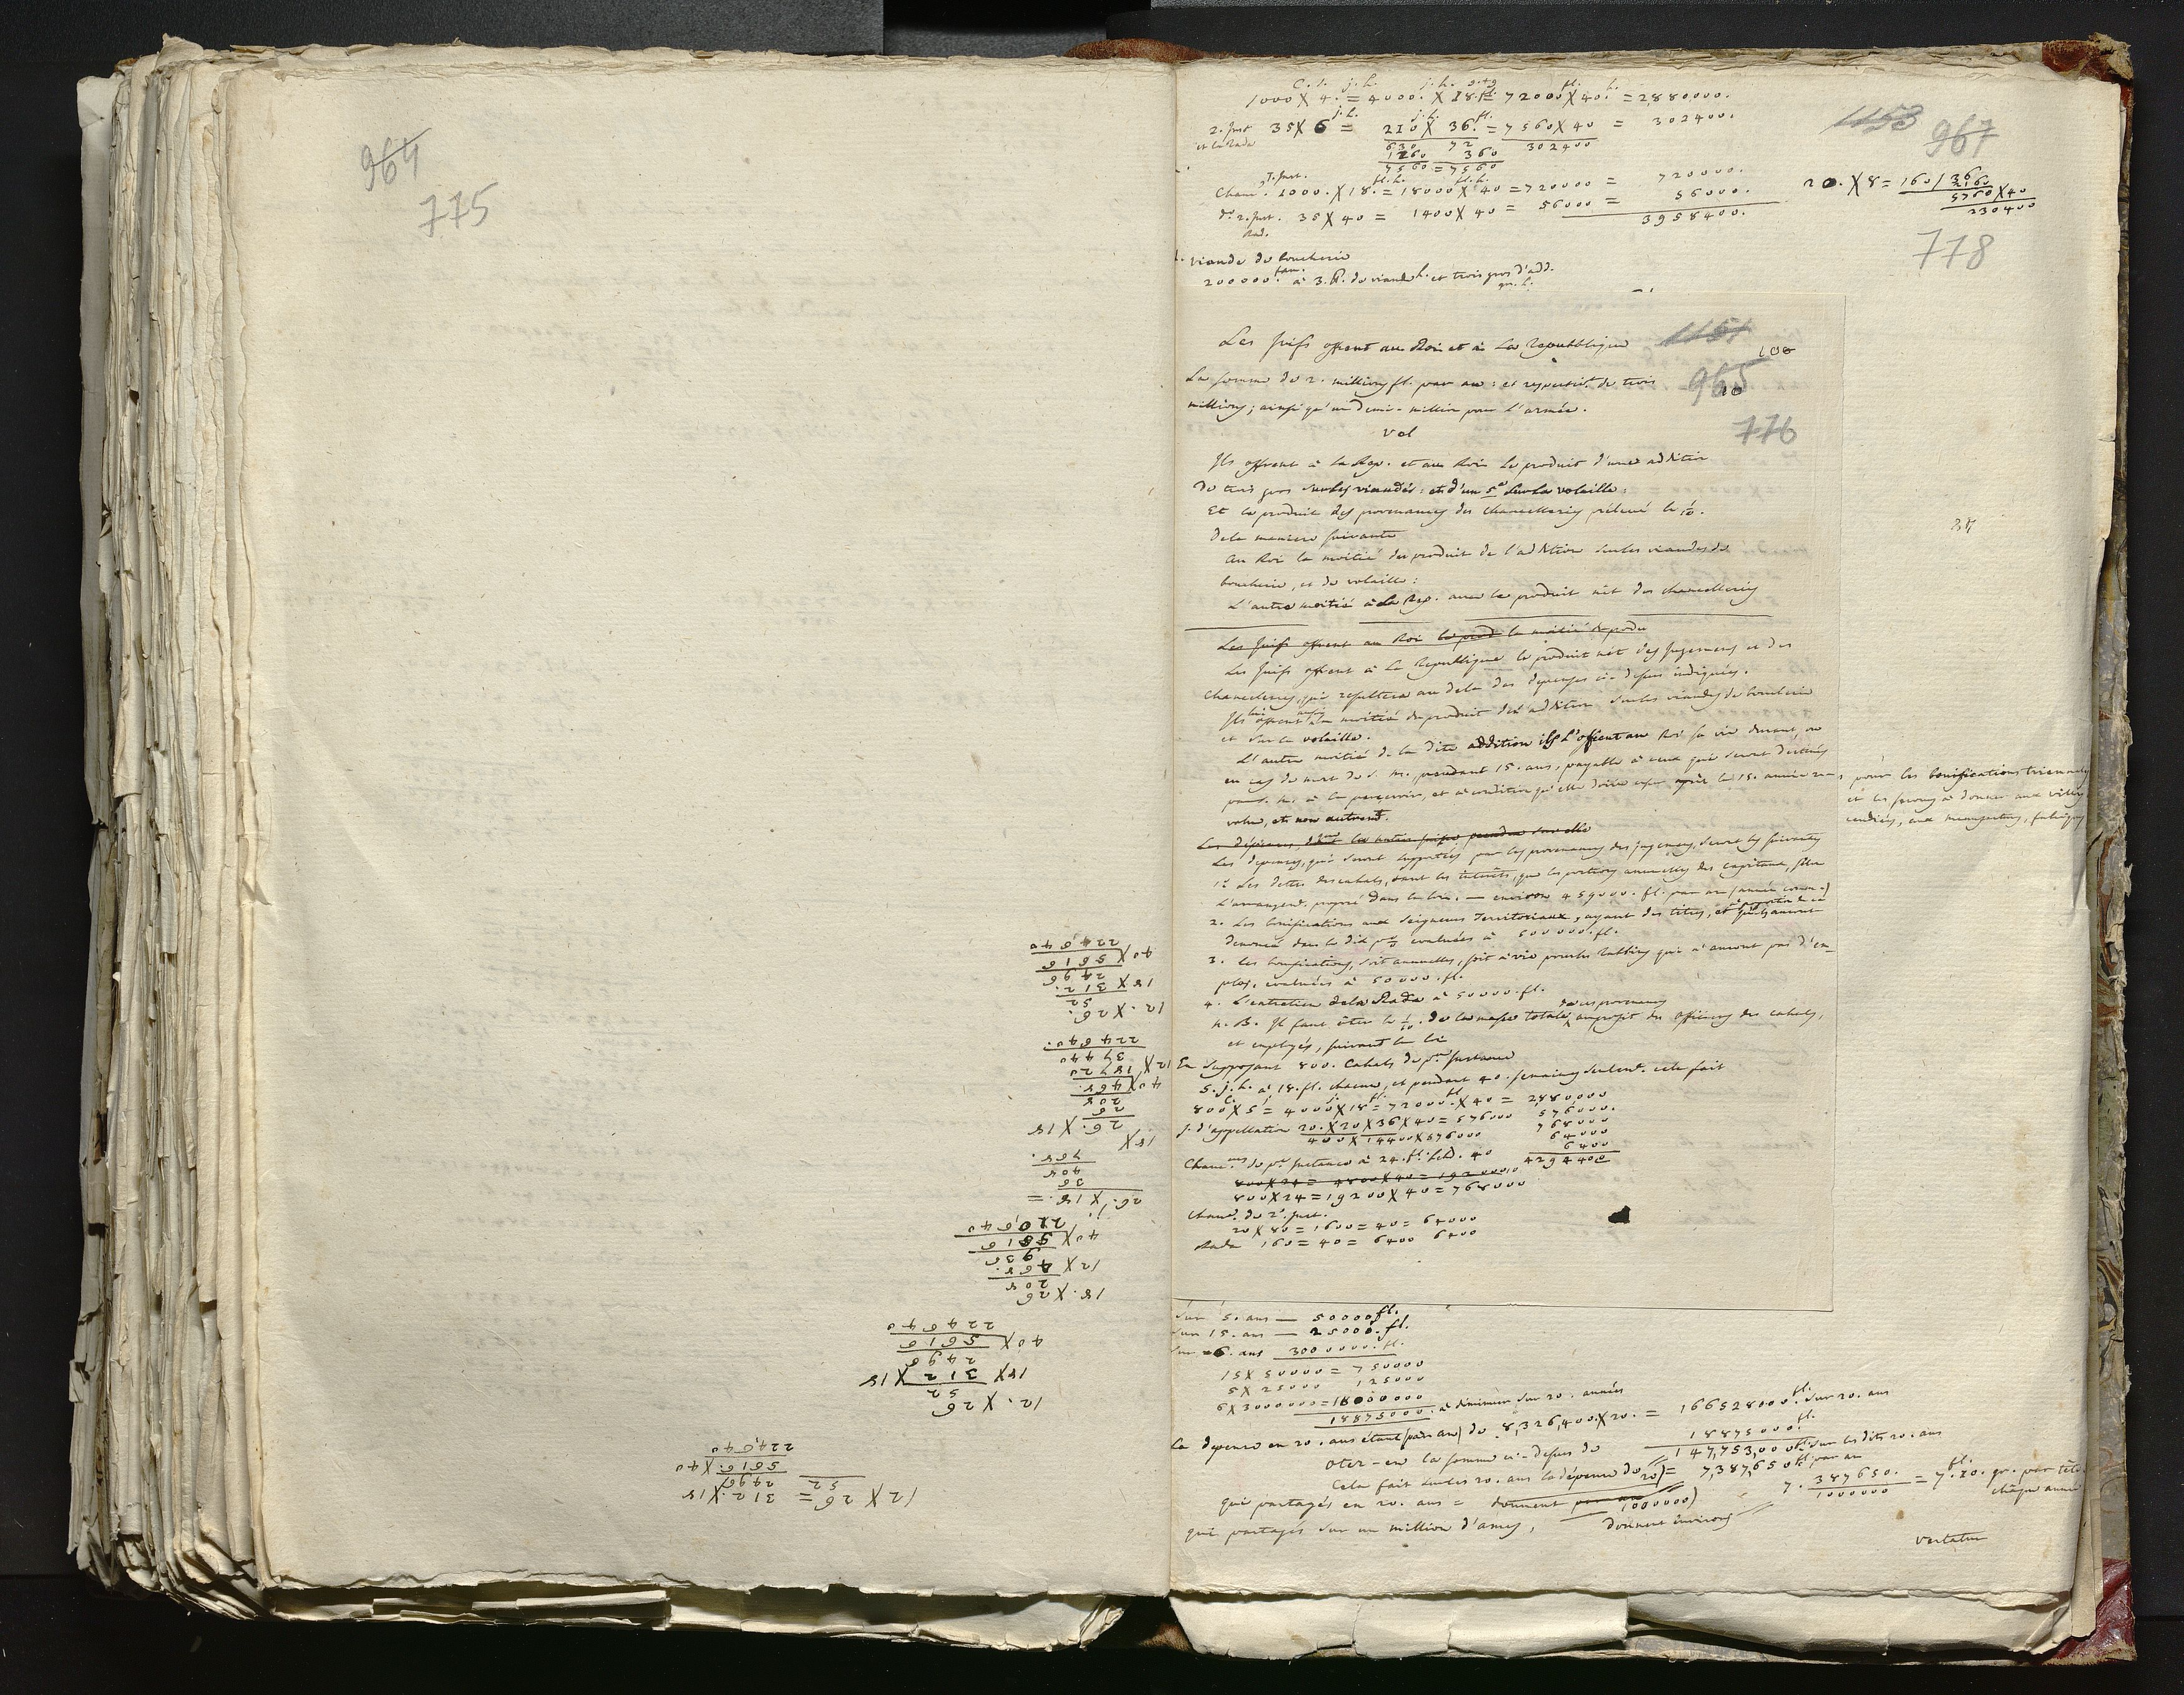 964
775
40
224640
40 X 5616
2496
18 X 312.
52
12. X 26.
224640.
37440
12 X 18720
40 X 468.
208
26
26. X 18
18 X
708.
408
36
26. X 18. =
220,640
40 X 5516
936
12 X 468.
208
18. X 26
224640
40 X 5616
2496
18 X 312 X 18
52
12. X 26
224,640
5616. X 40
2496
12 X 26 = 312. X 18
52
C. 1. j. h. j. h. fl. h.
1000 X 4. = 4000. X 18. fl. = 72000 X 40. = 2,880,000.
2. Inst. 35 X 6 = 210 X 36. = 7560 X 40 = 302400.
et la Rada
630 72 302400
1260 360
7560 = 7560
1. Inst.
Chanc. 1000. X 18. = 18000 X 40 = 720000 = 720000.
do. 2. Inst. 35 X 40 = 1400 X 40 = 56000 = 56000.
Rad. 3958400.
1153 967
20. X 8 = 160 / 36
2160
5760 X 40
230400
778
viande de boucherie
200000. fam. à 3. de viande h. et trois gros d'add.
1151
100
Les Juifs offrent au Roi et à La Republique
965
10
La somme de 2. millions fl. par an: et respectivt. de trois
millions; ainsi qu'un demi-million pour l'armée.
776
vol
Ils offrent à la Rep. et au Roi le produit d'une addition
de trois gros sur les viandes: et d'un 5e sur la volaille:
Et le produit des provenances des chancelleries prélevé le 1/10.
de la maniere suivante
Au Roi la moitié du produit de l'addition sur les viandes de
boucherie, et de volaille:
L'autre moitié à la Rep. avec le produit nèt des chancelleries
Les Juifs offrent au Roi le prod la moitié du produ
Les Juifs offrent à la Republique le produit nèt des Jugemens et des
Chancelleries, qui resultera au dela des depenses ci-dessus indiquées.
Ils lui offrent aussi la moitié du produit de l'addition sur les viandes de boucherie
et sur la volaille.
L'autre moitié de la dite addition ils l'offrent au Roi sa vie durant, ou
en cas de mort de S. M. pendant 15. ans, payable à ceux qui seront destinés
par S. M. à la percevoir, et à condition qu'elle doive après la 15. année
volue, et non autremt.
pour les bonifications triennales
et les secours à donner aux villes
aux manufactures, fabriques
Les dépenses,
Les depenses, qui seront supportées par les provenances des jugemens, seront les suivantes
1o Les dettes des cahals, tant les intérèts, que les portions annuelles des capitaux, selon
L'arrangemt. proposé dans la loi. — environ 459000. fl. par an (année comm.)
2. Les bonifications aux Seigneurs Territoriaux, ayant des titres, et qui auront
denoncé dans le dit evaluées à 500000. fl.
3. Les bonifications, soit annuelles, soit à vie pour les Rabbins qui n'auront pas d'em-
ploy, evaluées à 50000. fl.
4. L'entretien de la Rada à 50000. fl.
N. B. Il faut ôter le 1/10. de la masse totale de ces provenances au profit des officiers des cahals,
et employés, suivant la loi
En supposant 800. Cahals de pre. Instance
5. j. h. à 18. fl. chacune, et pendant 40. semaines seulemt. cela fait
800 X 5 = 4000 X 18 = 72000 X 40 = 2880000
j. d'appellation 20. X 20 X 36 X 40 = 576000 576000.
400 X 14400 X 576000 768000
64000
6400
Chanc.ries de pre. Instance à 24. fl. hebd. 40 4294400
800 X 24 = 4800 X 40 = 1920000
800 X 24 = 19200 X 40 = 768000
Chanc. de 2e. Inst.
20 X 80 = 1600 = 40 = 64000
Rada 160 = 40 = 6400 6400
Sur 5. ans — 50000 fl.
Sur 15. ans — 25000. fl.
Sur 6. ans 3000000. fl.
15 X 50000 = 750000
5 X 25000 125000
6 X 3000000 = 18000000
18875000. à diminuer sur 20. années
La depense en 20. ans étant (par an) de 8,326,400. X 20. = 166528000. fl. sur 20. ans
Oter-en la somme ci-dessus de 18875000. fl.
147,753,000 fl. sur les dits 20. ans
Cela fait sur les 20. ans la dépense de
qui partagés en 20. ans = 7,387,650 fl. par an
donnent par an
qui partagés sur un million d'ames, (1000000) donnent environ 7. 387650. / 1000000 = 7. fl. 20. gr. par tête
chaque année
vertatur